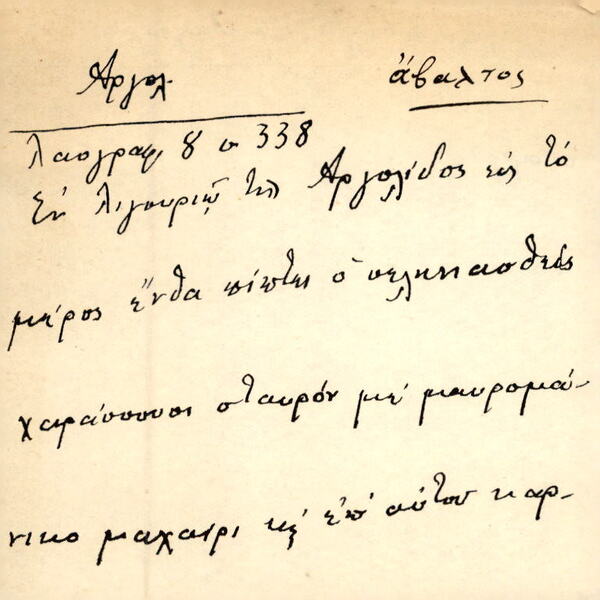 Αργολ. ἄβαλτος
Λαογραφ. 8 σ 338
Ἐν Λιγουριῷ τῆς Ἀργολίδος εἰς τὸ
μέρος ἔνθα πίπτει ὁ σεληνιασθεὶς
χαράσσουσι σταυρὸν μὲ μαυρομά-
νικο μαχαίρι κ ἐπ' αὐτοῦ καρ-